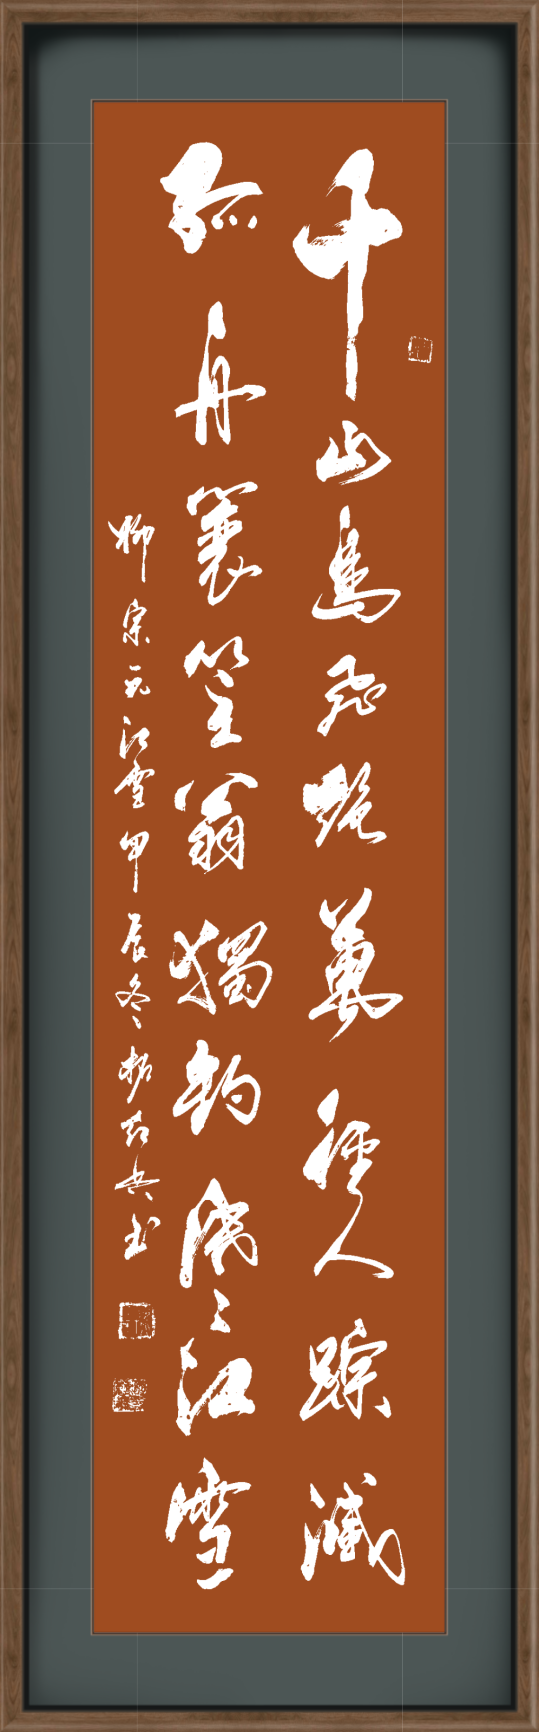 千山鳥飛絕萬徑人踪滅
孤舟蓑笠翁獨釣寒江雪
柳宗元江雪甲辰冬